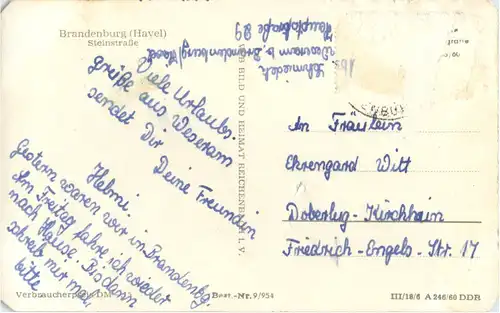 Brandenburg (Havel)
Steinstraße
Viele Urlaubs-
grüße aus Weseram
sendet Dir Deine Freundin
Helmi.
Gestern waren wir in Brandenbg.
Am Freitag fahre ich wieder
nach Hause. Bis dann
schreib mir mal,
bitte
Schmiedek
Weseram b. Brandenburg/Havel
Hauptstraße 29
VEB BILD UND HEIMAT REICHENBACH I. V.
An Fräulein
Ehrengard Witt
Doberlug-Kirchhain
Friedrich-Engels-Str. 17
Verbraucherpreis DM
Best.-Nr. 9/954
III/18/6 A 246/60 DDR